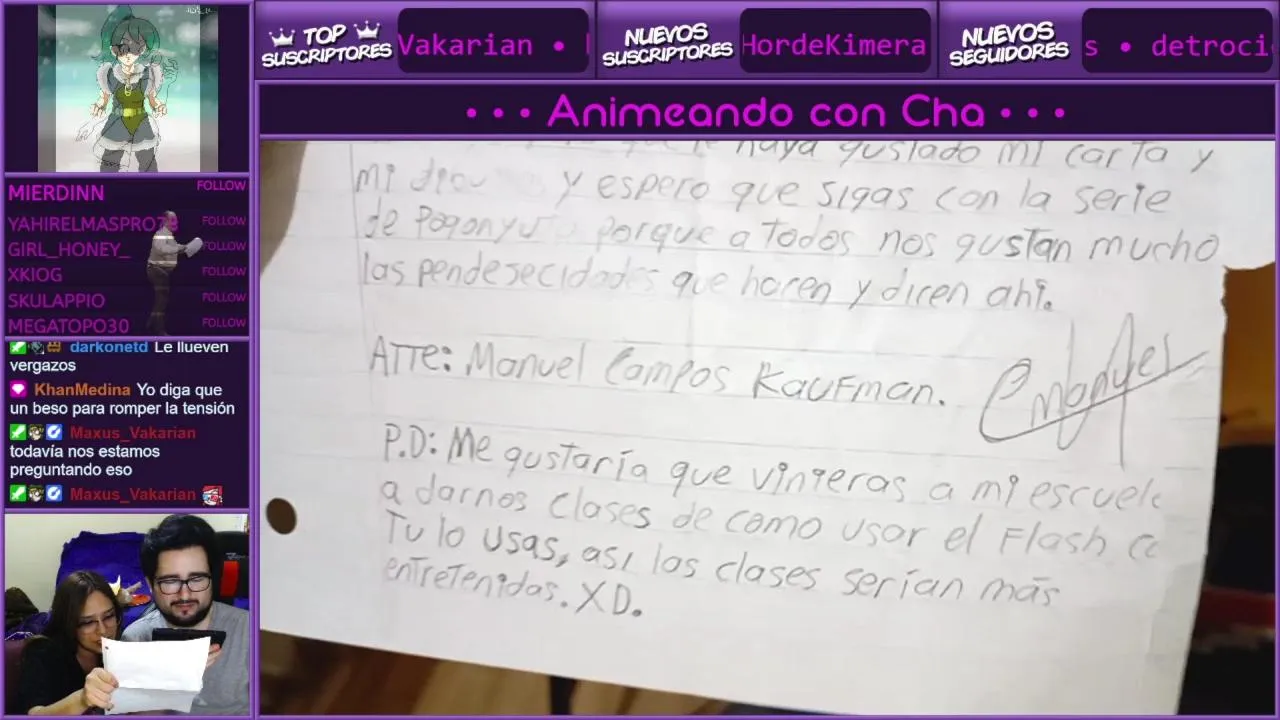 TOP
SUSCRIPTORES
Vakarian •
NUEVOS
SUSCRIPTORES
HordeKimera
NUEVOS
SEGUIDORES
s • detroci
• • • Animeando con Cha • • •
MIERDINN FOLLOW
YAHIRELMASPRO78 FOLLOW
GIRL_HONEY_ FOLLOW
XKIOG FOLLOW
SKULAPPIO FOLLOW
MEGATOPO30 FOLLOW
darkonetd Le llueven
vergazos
KhanMedina Yo diga que
un beso para romper la tensión
Maxus_Vakarian
todavía nos estamos
preguntando eso
Maxus_Vakarian
haya gustado mi carta y
mi y espero que sigas con la serie
de porque a todos nos gustan mucho
las pendesecidades que hacen y dicen ahi.
ATTE: Manuel Campos Kaufman. Emanuel
P.D: Me gustaría que vinieras a mi escuela
a darnos clases de como usar el Flash
Tu lo usas, asi las clases serían más
entretenidas. XD.